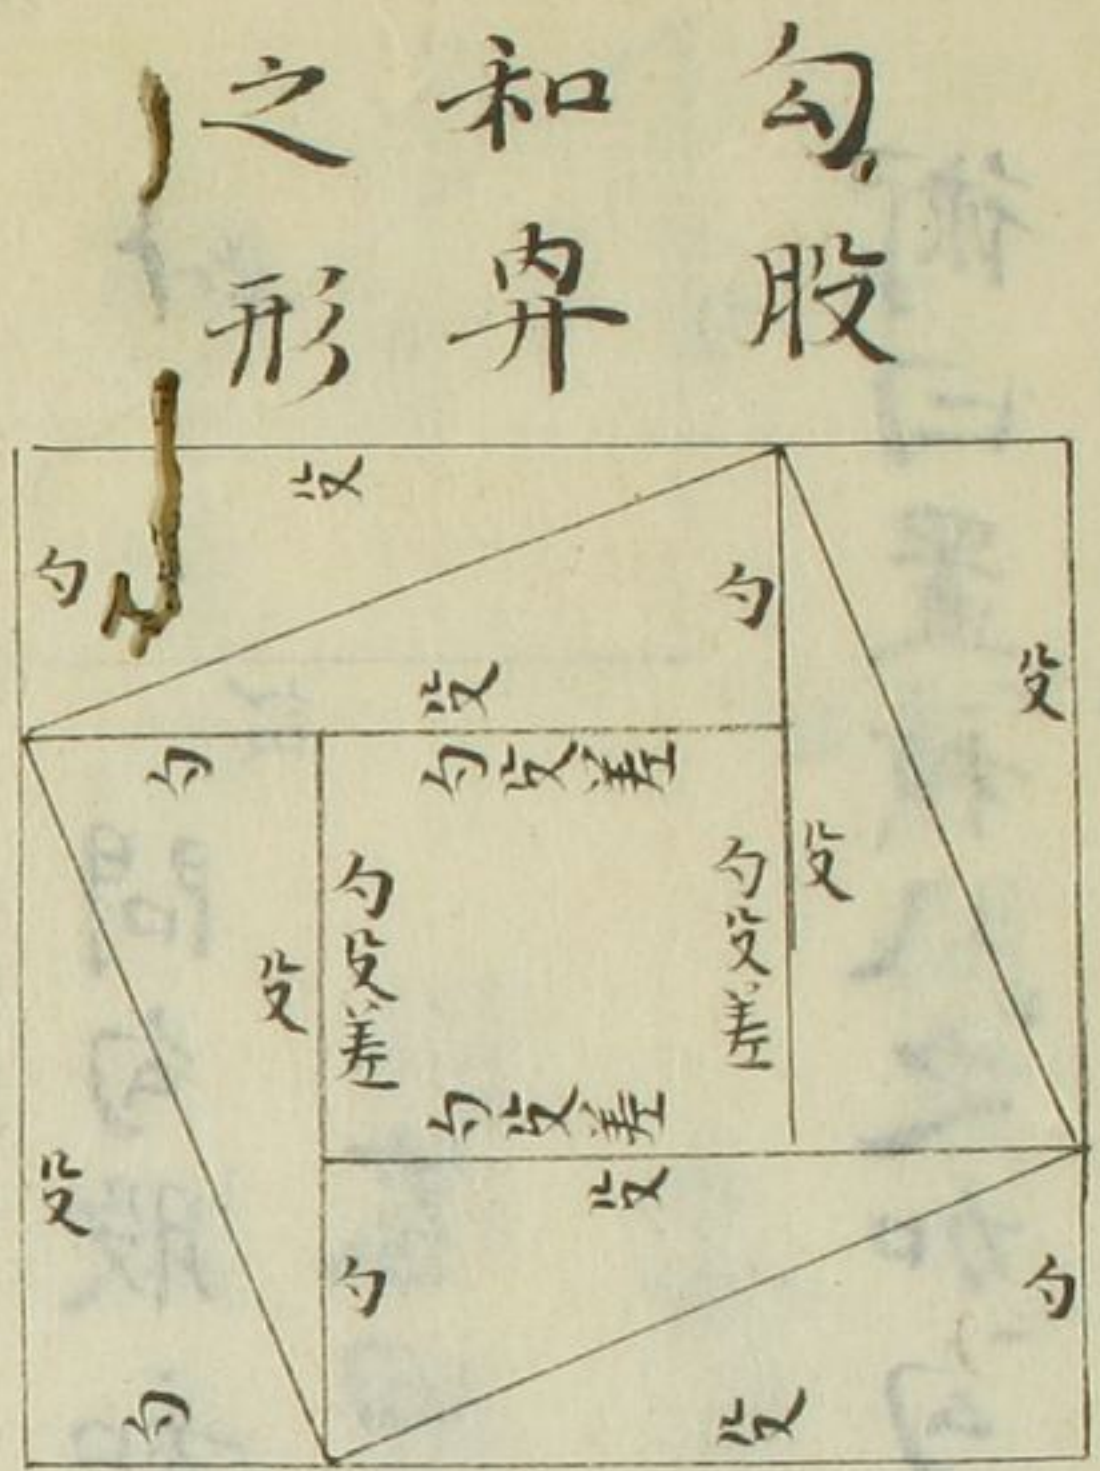 勾股
和
之形
殳
勾
勾
殳
殳
勾
勾殳差
殳
勾殳差
勾殳差
殳
勾殳差
殳
殳
勾
勾
勾
殳